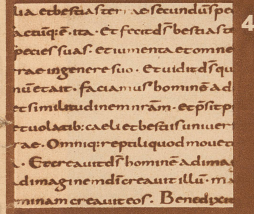 lia. et bestias terrae secundu spe
actumq; e. ita. Et fecit ds bestias t
species suas. et iumenta et omne
rrae in genere suo. Et uidit ds qu
nu et ait. faciamus homine ad
et similitudine nram. et psit p
et uolatib: caeli et bestiis uniuer
rae. Omniq; reptili quod mouet
. Et creauit ds homine ad ima
ad imagine di creauit illu. ma
minam creauit eos. Benedixit
4